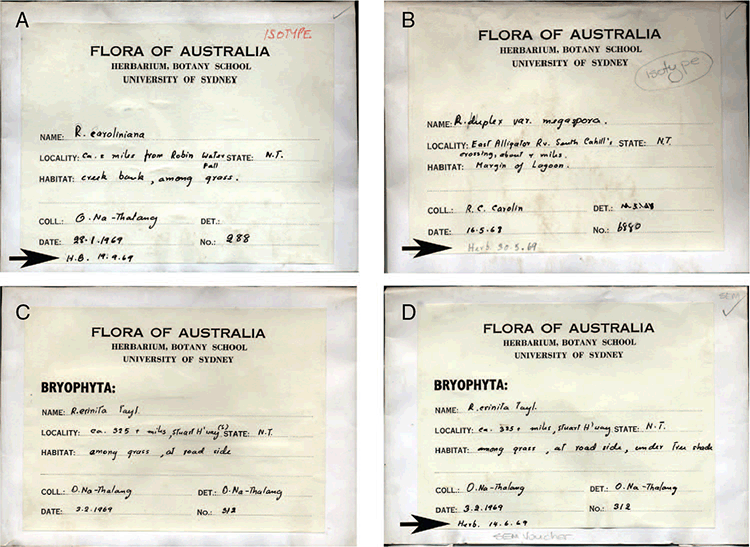 A
ISOTYPE
FLORA OF AUSTRALIA
HERBARIUM, BOTANY SCHOOL
UNIVERSITY OF SYDNEY
NAME: R. caroliniana
LOCALITY: ca. 2 miles from Robin Water Fall STATE: N.T.
HABITAT: creek bank, among grass.
COLL.: O. Na-Thalang DET.:
DATE: 28.1.1969 No.: 288
H.B. 19.9.69
B
isotype
FLORA OF AUSTRALIA
HERBARIUM, BOTANY SCHOOL
UNIVERSITY OF SYDNEY
NAME: R. duplex var. megaspora.
LOCALITY: East Alligator Rv. South Cahill's STATE: N.T.
crossing, about miles.
HABITAT: Margin of Lagoon.
COLL.: R. C. Carolin DET.:
DATE: 16.5.68 No.:
Herb 30.5.69
C
FLORA OF AUSTRALIA
HERBARIUM, BOTANY SCHOOL
UNIVERSITY OF SYDNEY
BRYOPHYTA:
NAME: R. crinita Tayl.
LOCALITY: ca. 325 + miles, Stuart H'way (S) STATE: N.T.
HABITAT: among grass, at road side
COLL.: O. Na-Thalang DET.: O. Na-Thalang
DATE: 3.2.1969 No.: 312
D
SEM
FLORA OF AUSTRALIA
HERBARIUM, BOTANY SCHOOL
UNIVERSITY OF SYDNEY
BRYOPHYTA:
NAME: R. crinita Tayl.
LOCALITY: ca. 325 + miles, Stuart H'way STATE: N.T.
HABITAT: among grass, at road side, under tree shade
COLL.: O. Na-Thalang DET.: O. Na-Thalang
DATE: 3.2.1969 No.: 312
Herb. 14.6.69
SEM Voucher